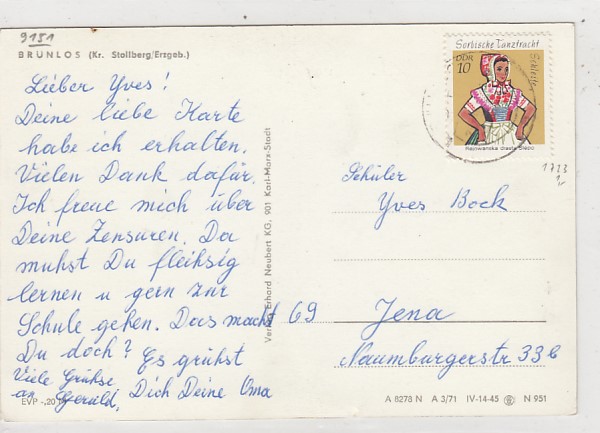 9151
BRÜNLOS (Kr. Stollberg/Erzgeb.)
Lieber Yves!
Deine liebe Karte
habe ich erhalten.
Vielen Dank dafür.
Ich freue mich über
Deine Zensuren. Da
mußt Du fleißig
lernen u gern zur
Schule gehen. Das macht
Du doch? Es grüßt
Dich Deine Oma
Viele Grüße
an Gerald.
EVP -,20
Verlag Erhard Neubert KG, 901 Karl-Marx-Stadt
Sorbische Tanztracht
DDR
10
Schleife
Rejwanska drasta Slepo
1723
Schüler
Yves Bock
69 Jena
Naumburgerstr 33b
A 8278 N A 3/71 IV-14-45 N 951